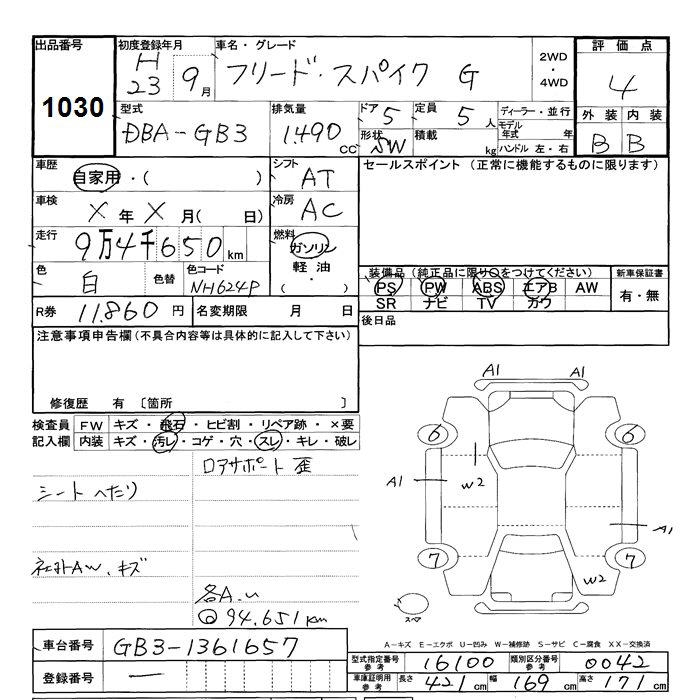 出品番号 初度登録年月 車名・グレード 2WD ・ 4WD 評価点
1030 H 23 9月 フリード・スパイク G 4
型式 排気量 ドア 5 定員 5人 ディーラー・並行 外装 内装
DBA-GB3 1.490 CC 形状 SW 積載 kg モデル年式 年 ハンドル 左・右 B B
車歴 自家用・( ) シフト AT セールスポイント (正常に機能するものに限ります)
車検 X年X月( 日) 冷房 AC
走行 9万4千650km 燃料 ガソリン 軽油 ・( )
色 白 色替 色コード NH624P
装備品(純正品に限り○をつけてください) 新車保証書
PS PW ABS エアB AW 有・無
SR ナビ TV カワ
R券 11.860円 名変期限 月 日 後日品
注意事項申告欄(不具合内容等は具体的に記入して下さい)
修復歴 有 〔箇所 〕
検査員 FW キズ・飛石・ヒビ割・リペア跡・×要
記入欄 内装 キズ・汚レ・コゲ・穴・スレ・キレ・破レ
ロアサポート 歪
シートへたり
社外AW.キズ
各A.U
@94.651km
A1 A1
6 6
A1 W2
A1
7 7
W2
スペア
A-キズ E-エクボ U-凹み W-補修跡 S-サビ C-腐食 XX-交換済
車台番号 GB3-1361657
登録番号 —
型式指定番号 参考 16100 類別区分番号 参考 0042
車庫証明用 参考 長さ 421cm 幅 169cm 高さ 171cm